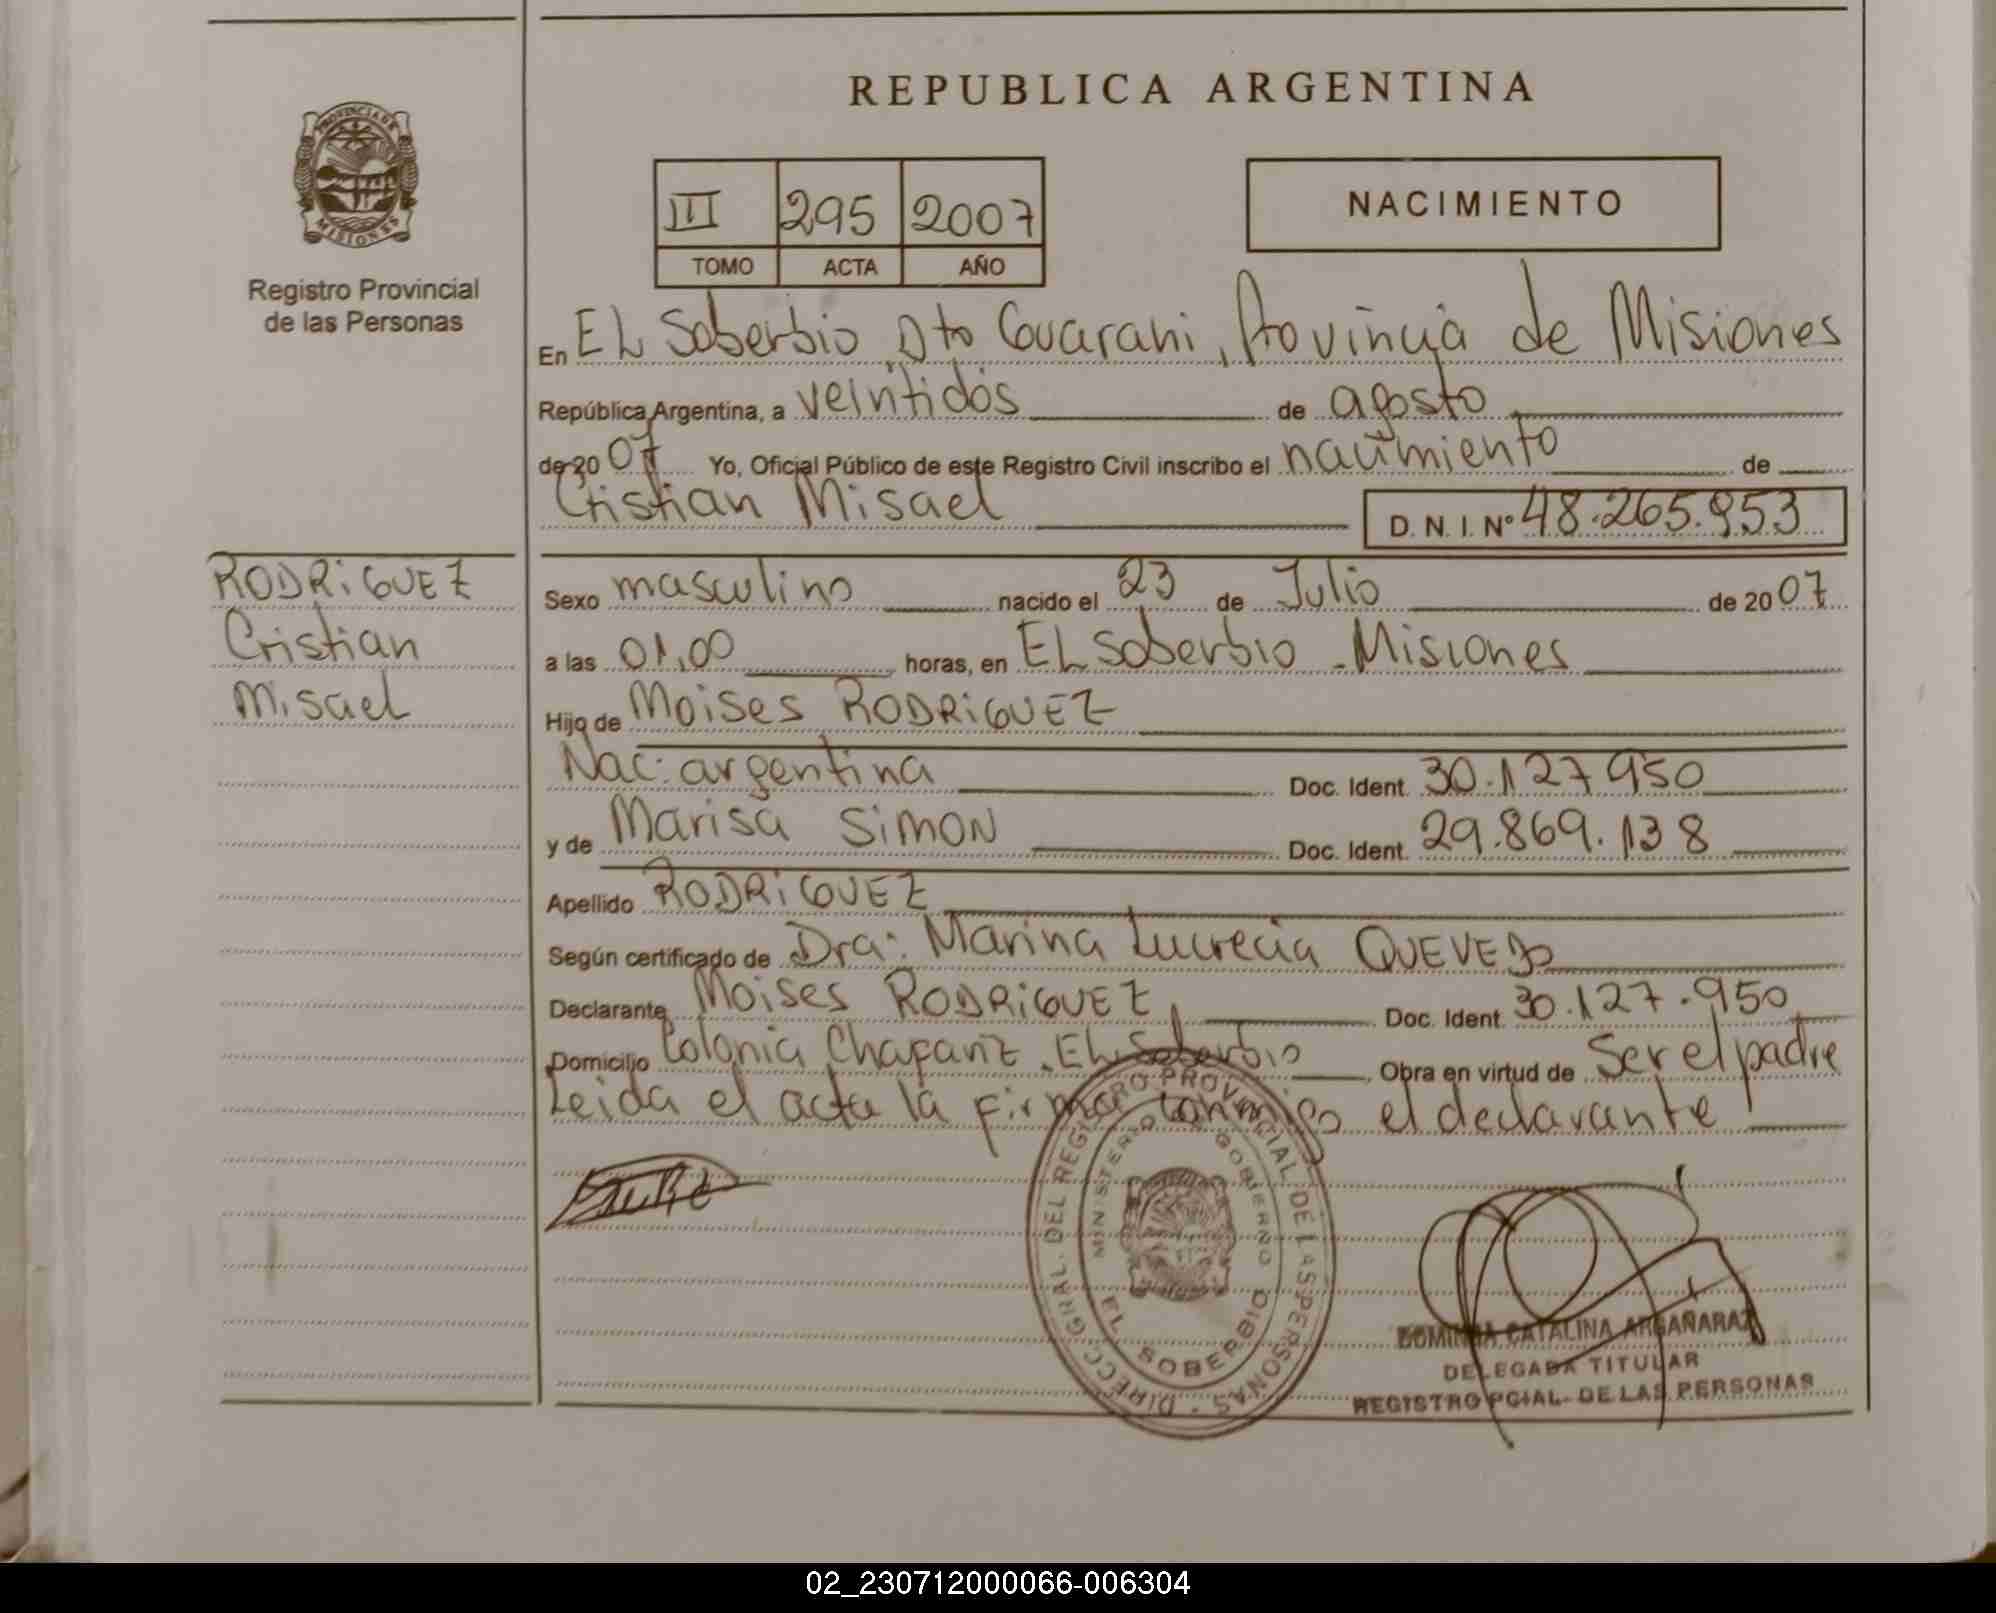 REPUBLICA ARGENTINA
PROVINCIA DE
MISIONES
Registro Provincial
de las Personas
III 295 2007
TOMO ACTA AÑO
NACIMIENTO
En EL Soberbio, Dto Guarani, Provincia de Misiones
República Argentina, a veintidós de agosto
de 20 07 Yo, Oficial Público de este Registro Civil inscribo el nacimiento de
Cristian Misael D. N. I. Nº 48.265.953
RODRiGUEZ
Cristian
Misael
Sexo masculino nacido el 23 de Julio de 20 07
a las 01,00 horas, en EL Soberbio - Misiones
Hijo de Moises RODRiGUEZ
Nac: argentina Doc. Ident. 30.127.950
y de Marisa SiMON Doc. Ident. 29.869.138
Apellido RODRiGUEZ
Según certificado de Dra: Marina Lucrecia QUEVEDO
Declarante Moises RODRiGUEZ, Doc. Ident. 30.127.950
Domicilio Colonia Chafariz, EL Soberbio Obra en virtud de Ser el padre
Leida el acta la firma conmigo el declarante
DIRECC. GRAL. DEL REGISTRO PROVINCIAL DE LAS PERSONAS
MINISTERIO DE GOBIERNO
EL SOBERBIO
CATALINA ARGAÑARAZ
DELEGADA TITULAR
REGISTRO PCIAL. DE LAS PERSONAS
02_230712000066-006304